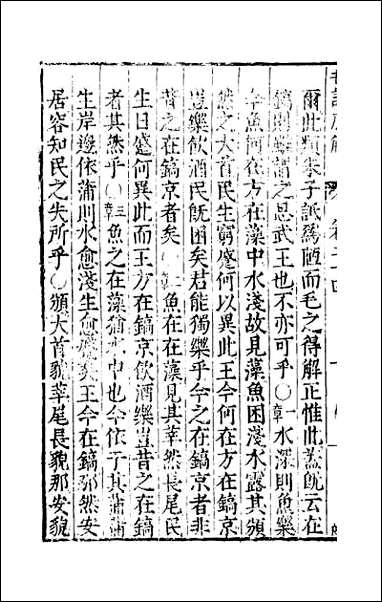 爾此類朱子詆爲陋而毛之得解正惟此蓋旣云在
鎬則無謂之思武王也不亦可乎○一章水深則魚樂
今魚何在方在藻中水淺故見藻魚困淺水露其頒
然之大首民生窮蹙何以異此王今何在方在鎬京
豈樂飲酒民旣困矣君能獨樂乎今之在鎬京者非
昔之在鎬京者矣○二章魚在在藻見其莘然長尾民
生日蹙何異此而王方在鎬京飲酒樂豈昔之在鎬
者其然乎○三章魚之在藻猶水中也今依于其蒲蒲
生岸邊依蒲則水愈淺生愈蹙矣王今在鎬那然安
居容知民之失所乎○頒大首貌莘尾長貌那安貌